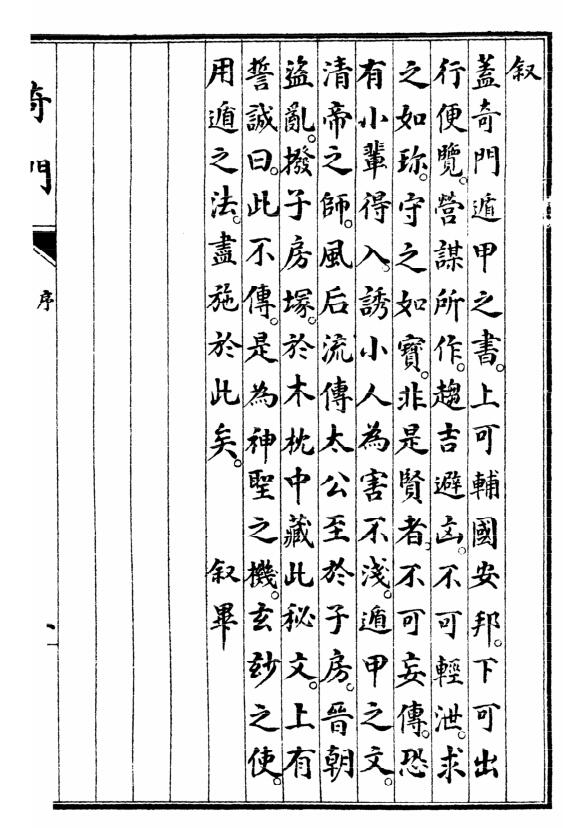 叙
蓋奇門遁甲之書。上可輔國安邦。下可出
行便覽。營謀所作。趨吉避㐫。不可輕泄。求
之如珎。守之如寳。非是賢者、不可妄傳。恐
有小輩得入、誘小人為害不淺。遁甲之文。
清帝之師。風后流傳太公至於子房。晉朝
盜亂。撥子房塚。於木枕中藏此秘文。上有
誓誡曰。此不傳。是為神聖之機。玄玅之使。
用遁之法。盡施於此矣。 叙畢
奇門
序
一